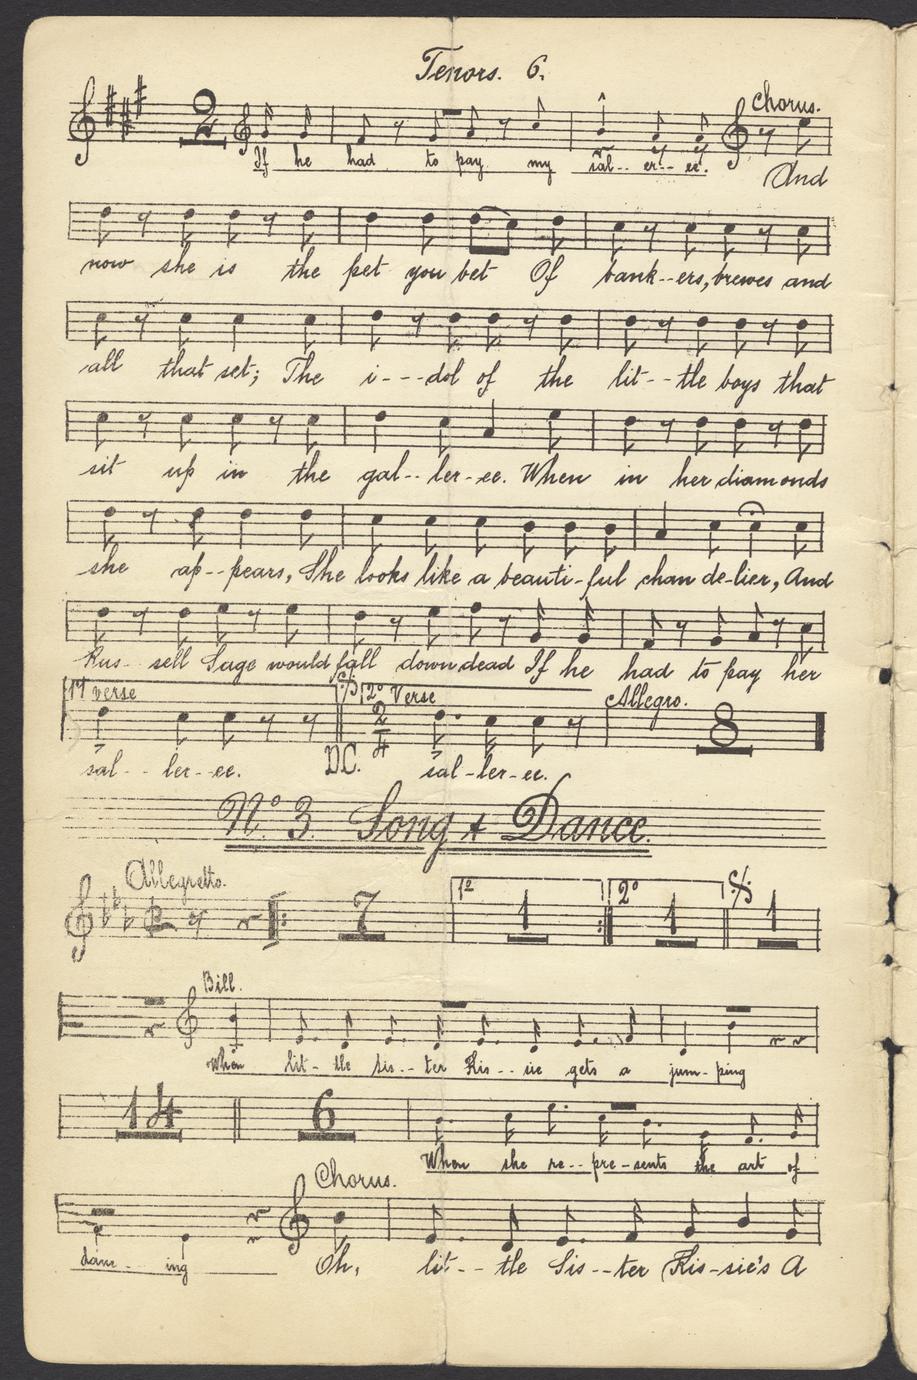 Tenors. 6.
2
Chorus.
If he had to pay my sal-- er-- ee. And
now she is the pet you bet Of bank--ers, brewes and
all that set; The i---dol of the lit--tle boys that
sit up in the gal--ler-ee. When in her diamonds
she ap--pears, She looks like a beauti-ful chan de-lier, And
Rus-- sell Sage would fall down dead If he had to pay her
1º verse 2º Verse Allegro.
2/4 8
sal-- ler--ee. D.C. sal-ler-ee.
Nº 3. Song & Dance.
Allegretto.
7 1º 1 2º 1 1
Bill.
When lit- tle sis-- ter Kis-- sie gets a jum- ping
14 6
When she re--pre-sents the art of
Chorus.
danc-- ing Oh, lit--tle Sis--ter Kis-sie's A